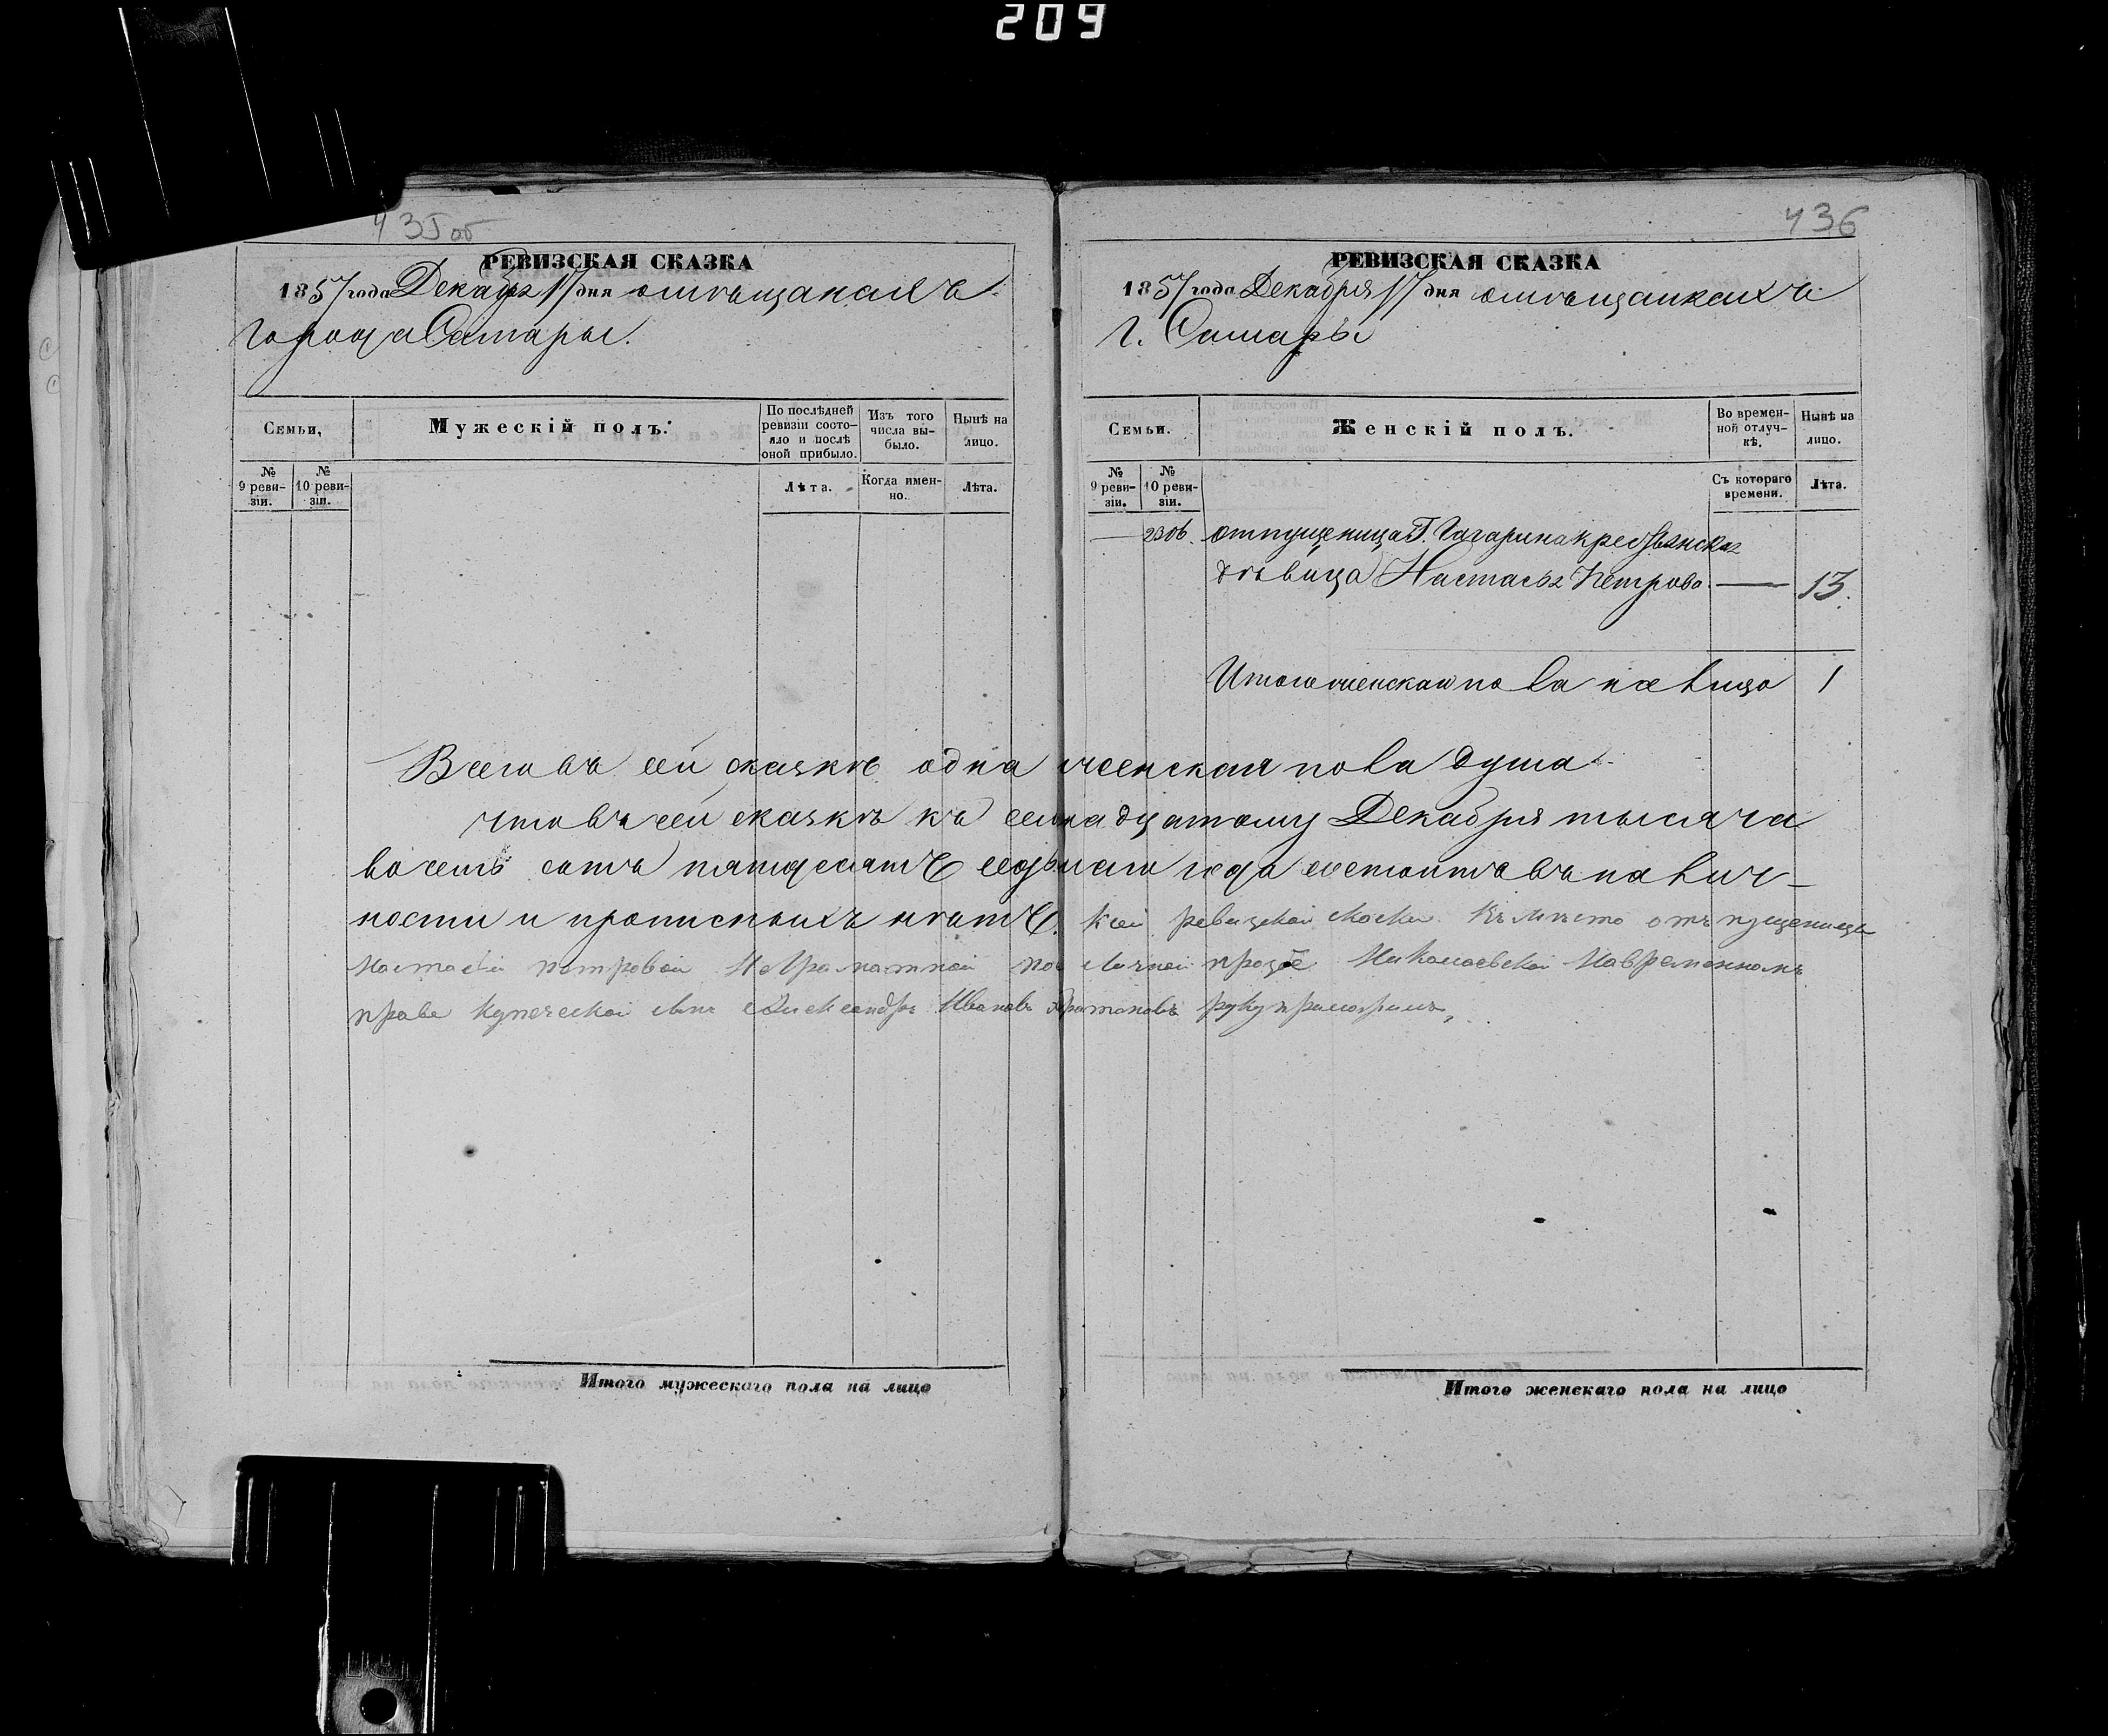 209
435 об
РЕВИЗСКАЯ СКАЗКА
1857 года Декабря 17 дня о мѣщанахъ
Города Самары.
Семьи,
Мужескій полъ.
По послѣдней ревизіи состояло и послѣ оной прибыло.
Изъ того числа выбыло.
Нынѣ на лицо.
№ 9 ревизіи.
№ 10 ревизіи.
Лѣта.
Когда именно.
Лѣта.
436
РЕВИЗСКАЯ СКАЗКА
1857 года Декабря 17 дня о мѣщанкахъ
Г. Самары
Семьи.
Женскій полъ.
Во временной отлучкѣ.
Нынѣ на лицо.
№ 9 ревизіи.
№ 10 ревизіи.
Съ котораго времени.
Лѣта.
— 2306. отпущеница Г. Гагарина крестьянская
дѣвица Настасья Петрова — 13.
Итого женскаго пола на лицо 1
Всего въ сей сказкѣ одна женская пола душа
что въ сей сказкѣ къ семнадцатому Декабря тысяча
восемь сотъ пятдесятъ седьмаго года состоитъ въ налич-
ности и прописныхъ нѣтъ. К сей ревизской скаски въместо отъпущеницы
Настасьи петровой Неграматной по личной прозбе Николаевской На временномъ
праве купеческой сынъ Александръ Ивановъ рукуприложилъ,
Итого мужескаго пола на лицо
Итого женскаго пола на лицо